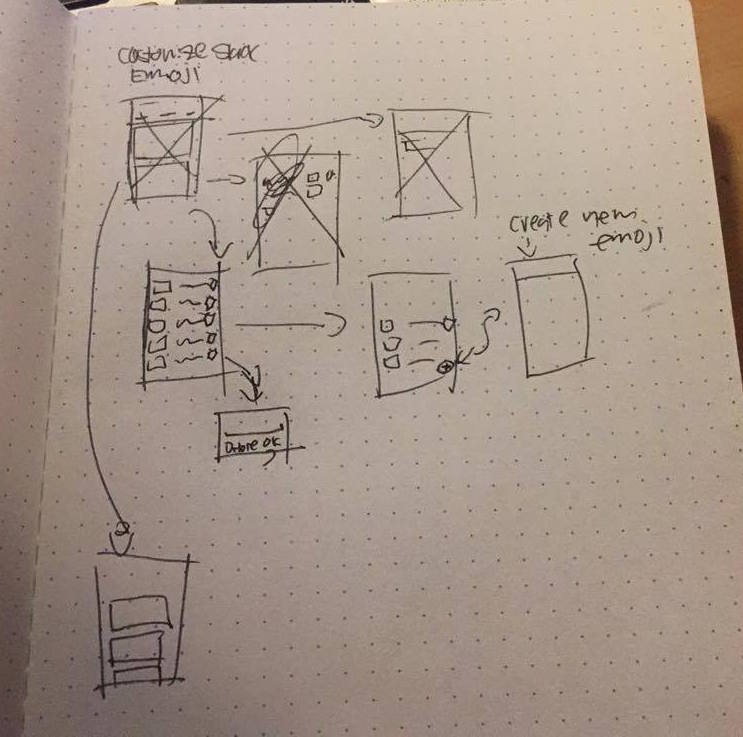 Customize Slack
Emoji
create new
emoji
ok